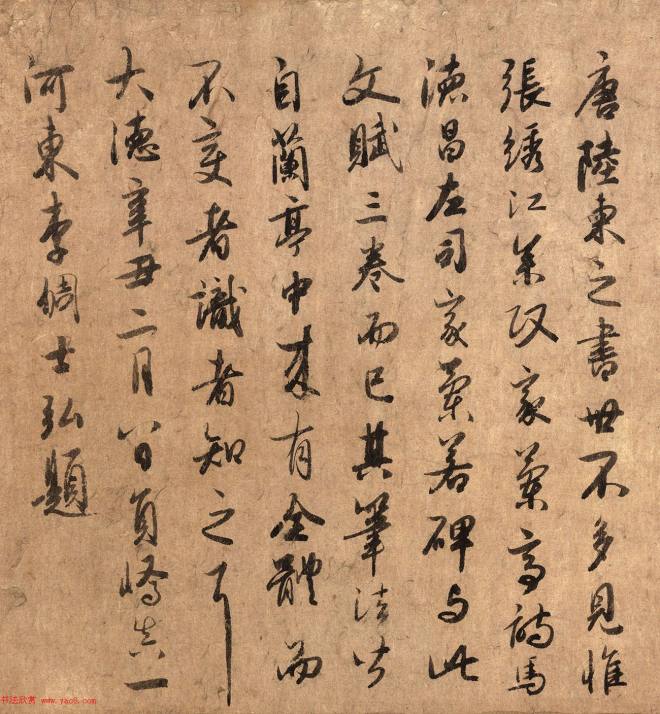 唐陸柬之書世不多見惟
張綉江參政家蘭亭詩馬
德昌左司家蘭若碑与此
文賦三卷而已其筆法皆
自蘭亭中來有全體而
不变者識者知之耳
大德辛丑二月八日員嶠真一
河東李倜士弘題
书法欣赏 www.yac8.com